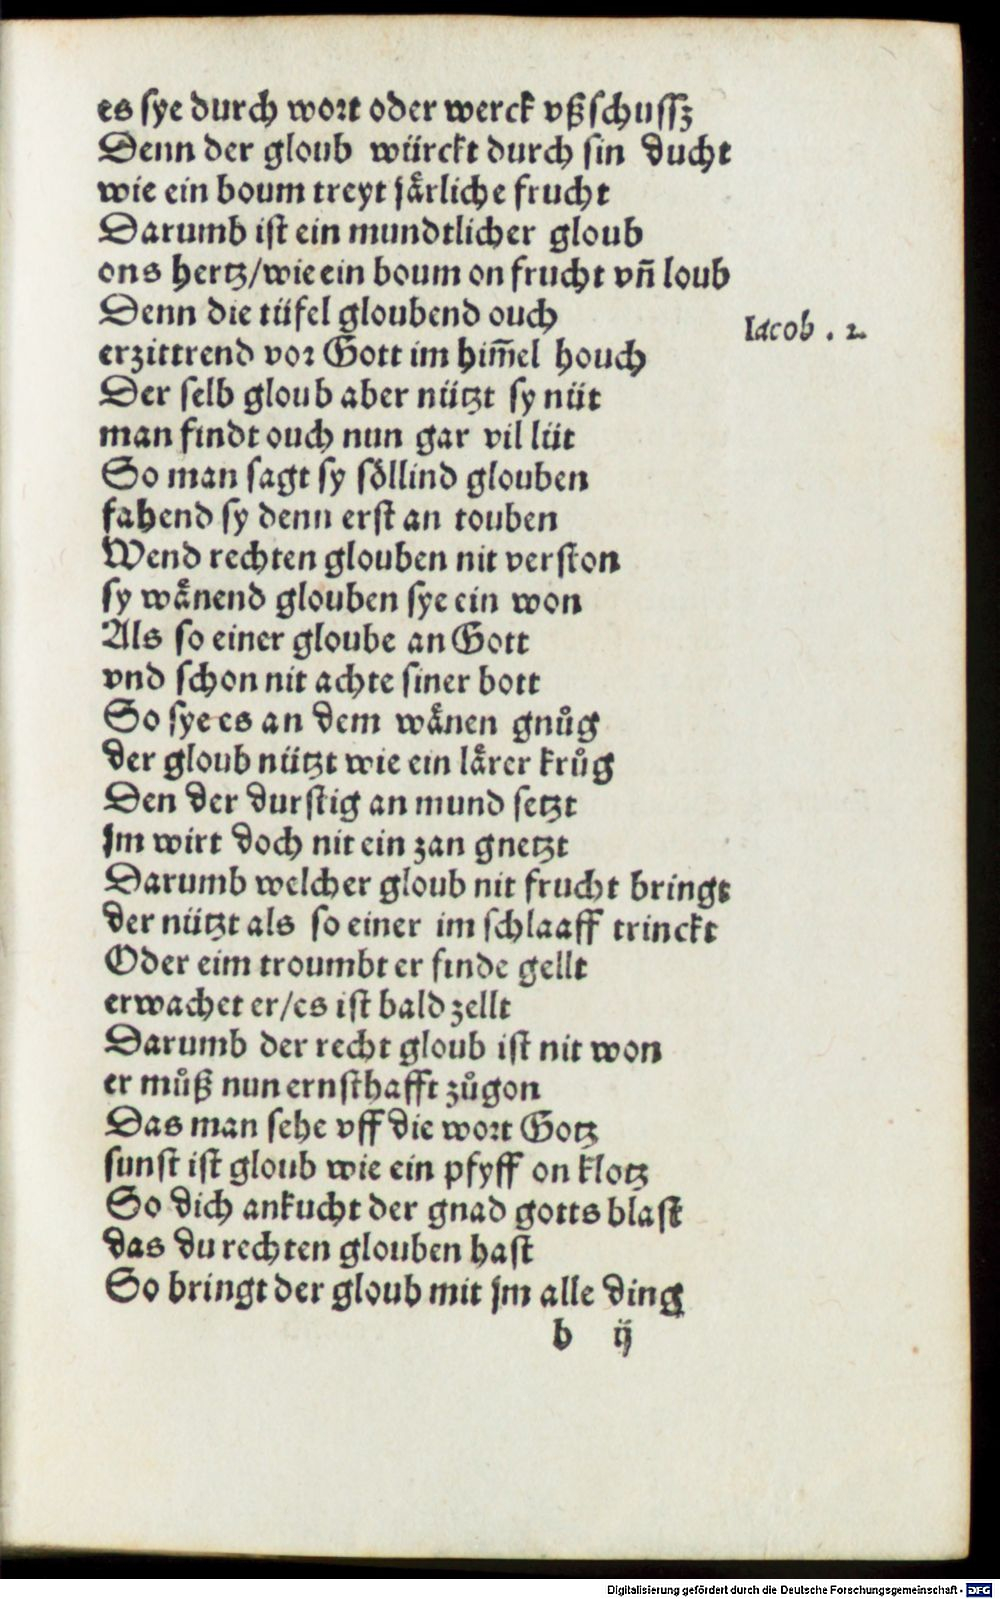 es sye durch wort oder werck vßschussz
Denn der gloub würckt durch sin ducht
wie ein boum treyt jaͤrliche frucht
Darumb ist ein mundtlicher gloub
ons hertz/wie ein boum on frucht vñ loub
Denn die tüfel gloubend ouch
Iacob . 2.
erzittrend vor Gott im him̃el houch
Der selb gloub aber nützt sy nüt
man findt ouch nun gar vil lüt
So man sagt sy soͤllind glouben
fahend sy denn erst an touben
Wend rechten glouben nit verston
sy waͤnend glouben sye ein won
Als so einer gloube an Gott
vnd schon nit achte siner bott
So sye es an dem waͤnen gnuͦg
der gloub nützt wie ein laͤrer kruͦg
Den der durstig an mund setzt
jm wirt doch nit ein zan gnetzt
Darumb welcher gloub nit frucht bringt
der nützt als so einer im schlaaff trinckt
Oder eim troumbt er finde gellt
erwachet er/es ist bald zellt
Darumb der recht gloub ist nit won
er muͦß nun ernsthafft zuͦgon
Das man sehe vff die wort Gotz
sunst ist gloub wie ein pfyff on klotz
So dich ankucht der gnad gotts blast
das du rechten glouben hast
So bringt der gloub mit jm alle ding
b ij
Digitalisierung gefördert durch die Deutsche Forschungsgemeinschaft - DFG